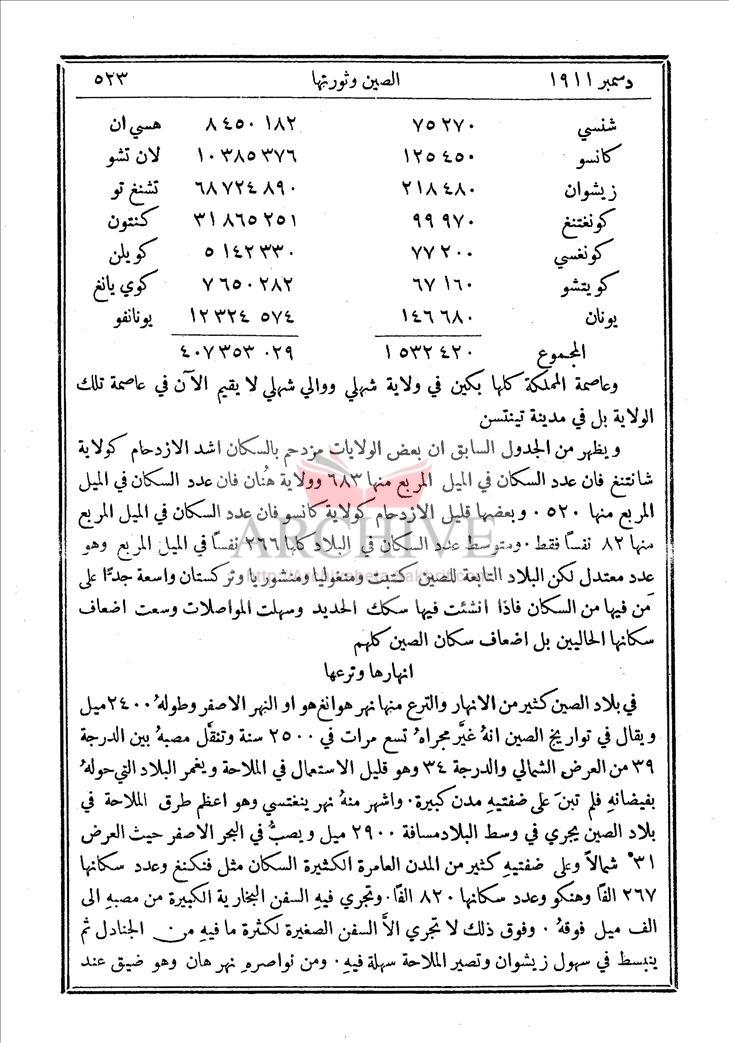 دسمبر ١٩١١ الصين وثورتها ٥٢٣
شنسي ٧٥٢٧٠ ٨٤٥٠١٨٢ هسي ان
كانسو ١٢٥٤٥٠ ١٠٣٨٥٣٧٦ لان تشو
زيشوان ٢١٨٤٨٠ ٦٨٧٢٤٨٩٠ تشنغ تو
كونغتنغ ٩٩٩٧٠ ٣١٨٦٥٢٥١ كنتون
كونغسي ٧٧٢٠٠ ٥١٤٢٣٣٠ كويلن
كويتشو ٦٧١٦٠ ٧٦٥٠٢٨٢ كوي يانغ
يونان ١٤٦٦٨٠ ١٢٣٢٤٥٧٤ يونانفو
المجموع ١٥٣٢٤٢٠ ٤٠٧٣٥٣٠٢٩
وعاصمة المملكة كلها بكين في ولاية شهلي ووالي شهلي لا يقيم الآن في عاصمة تلك
الولاية بل في مدينة تينتسن
ويظهر من الجدول السابق ان بعض الولايات مزدحم بالسكان اشد الازدحام كولاية
شانتنغ فان عدد السكان في الميل المربع منها ٦٨٣ وولاية هُنان فان عدد السكان في الميل
المربع منها ٥٢٠ . وبعضها قليل الازدحام كولاية كانسو فان عدد السكان في الميل المربع
منها ٨٢ نفساً فقط . ومتوسط عدد السكان في البلاد كلها ٢٦٦ نفساً في الميل المربع وهو
عدد معتدل لكن البلاد التابعة للصين كتبت ومنغوليا ومنشوريا وتركستان واسعة جدًّا على
مَن فيها من السكان فاذا انشئت فيها سكك الحديد وسهلت المواصلات وسعت اضعاف
سكانها الحاليين بل اضعاف سكان الصين كلهم
انهارها وترعها
في بلاد الصين كثير من الانهار والترع منها نهر هوانغ هو او النهر الاصفر وطولهُ ٢٤٠٠ ميل
ويقال في تواريخ الصين انهُ غيَّر مجراهُ تسع مرات في ٢٥٠٠ سنة وتنقَّل مصبه بين الدرجة
٣٩ من العرض الشمالي والدرجة ٣٤ وهو قليل الاستعمال في الملاحة ويغمر البلاد التي حولهُ
بفيضانهِ فلم تبنَ على ضفتيهِ مدن كبيرة . واشهر منهُ نهر ينغتسي وهو اعظم طرق الملاحة في
بلاد الصين يجري في وسط البلاد مسافة ٢٩٠٠ ميل ويصبُّ في البحر الاصفر حيث العرض
٣١° شمالاً وعلى ضفتيهِ كثير من المدن العامرة الكثيرة السكان مثل فنكنغ وعدد سكانها
٢٦٧ الفًا وهنكو وعدد سكانها ٨٢٠ الفًا . وتجري فيهِ السفن البخارية الكبيرة من مصبهِ الى
الف ميل فوقهُ . وفوق ذلك لا تجري الاَّ السفن الصغيرة لكثرة ما فيهِ من الجنادل ثم
ينبسط في سهول زيشوان وتصير الملاحة سهلة فيهِ . ومن نواصره نهر هان وهو ضيق عند
ARCHIVE